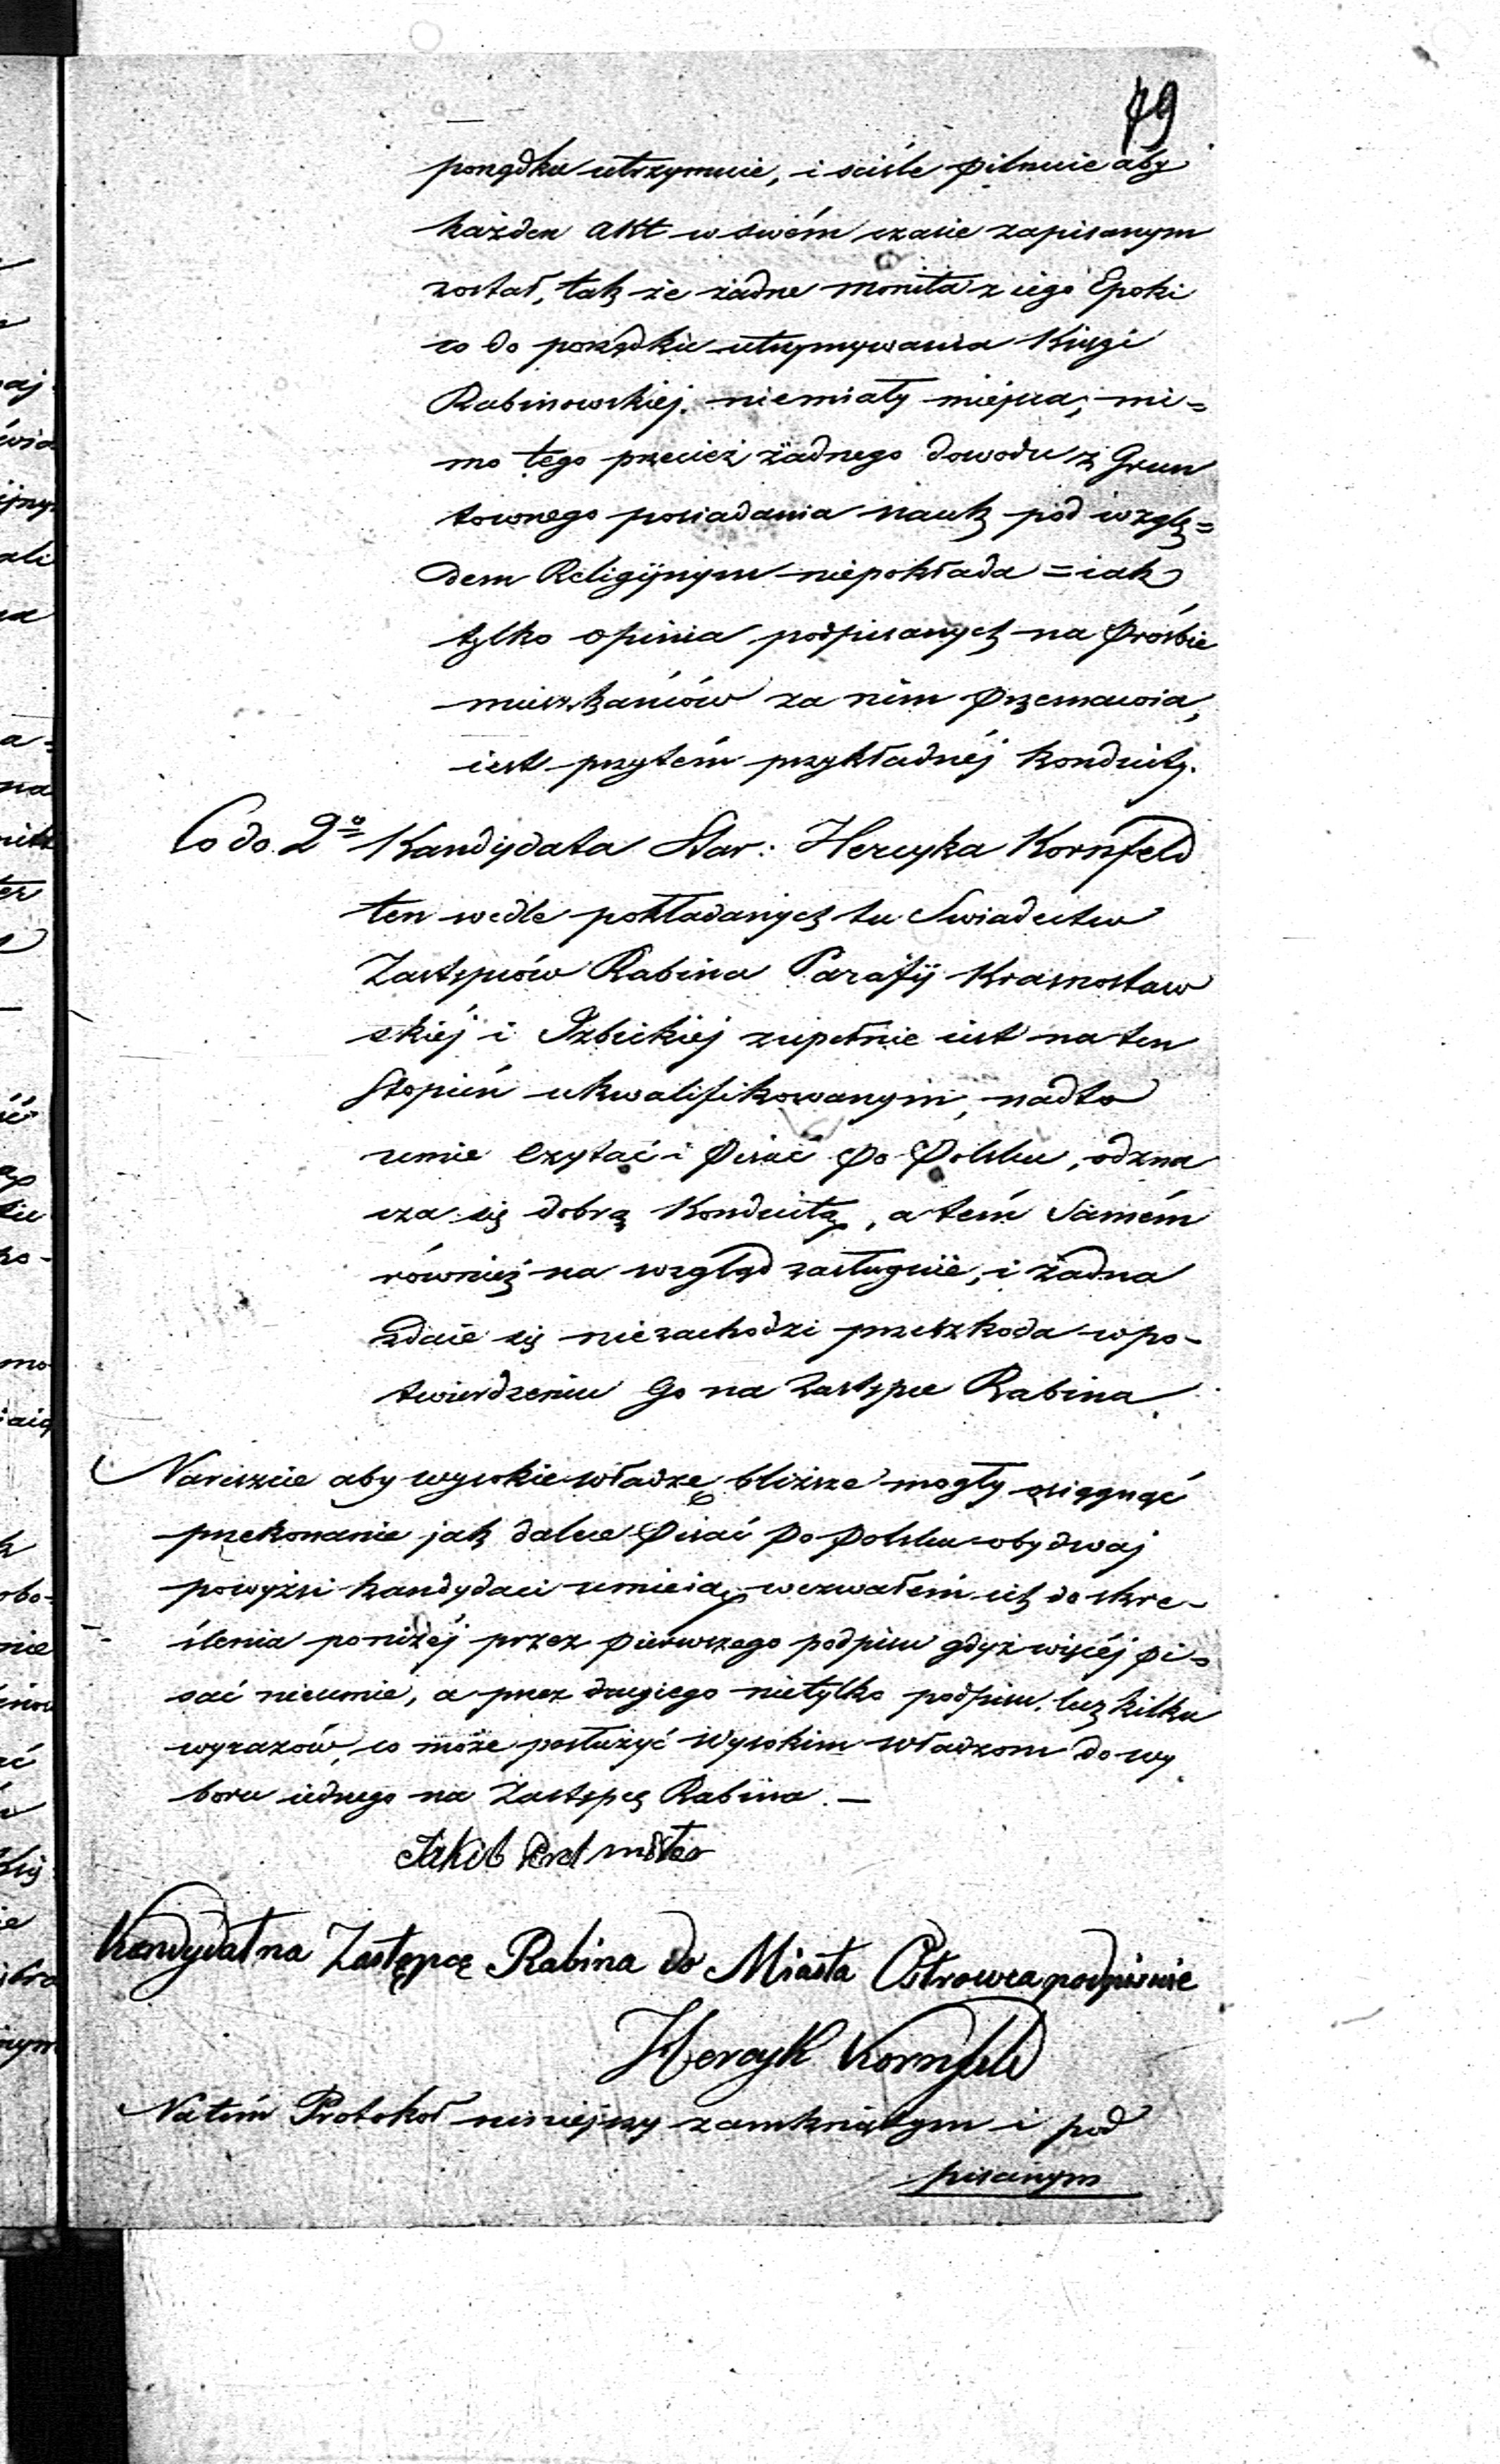 79
porządku utrzymuie, i sciśle pilnuie aby
każden akt w swém czasie zapisanym
został, tak że żadne monita z iego Epoki
co do porządku utrzymywania Księgi
Rabinowskiej, niemiały miejsca; mi=
mo tego przecież żadnego dowodu z Grun
townego posiadania nauk pod wzglę=
dem Religijnym niepokłada = iak
tylko opinia podpisanych na Prośbie
mieszkańców za nim przemawia,
iest przytém przykładnéj konduity.
Co do 2º Kandydata Star: Hercyka Kornfeld
ten wedle pokładanych tu Swiadectw
Zastępców Rabina Parafij Krasnostaw
skiéj i Izbickiéj zupełnie iest na ten
Stopień ukwalifikowanym, nadto
umie Czytać i Pisać Po Polsku, odzna
cza się dobrą Konduitą, a tém samém
również na wzgląd zasługuie, i żadna
zdaie się niezachodzi przeszkoda w po-
twierdzeniu Go na Zastępce Rabina.
Nareszcie aby wysokie władze bliższe mogły osiągnąć
przekonanie jak dalece Pisać Po Polsku obydwaj
powyżsi kandydaci umieią, wezwałem ich do skre-
ślenia poniżéj przez pierwszego podpisu gdyż więcéj pi=
sać nieumie, a przez drugiego nietylko podpisu, lecz kilku
wyrazów, co może posłużyć Wysokim Władzom do wy
boru iednego na Zastępcę Rabina. —
Kandydat na Zastępcę Rabina do Miasta Ostrowca podpisuie
Hercyk Kornfeld
Natém Protokoł niniejszy zamkniętym i pod
pisanym